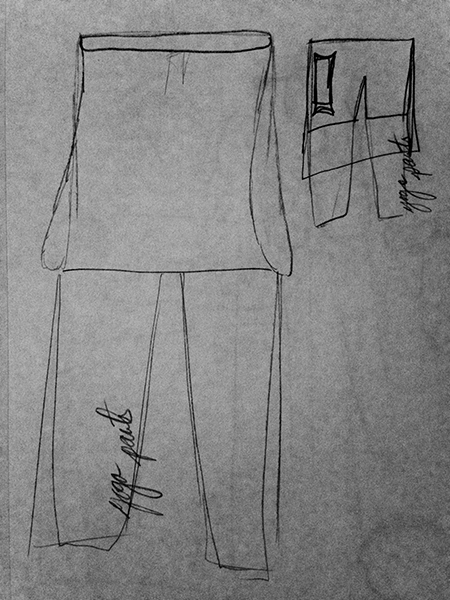 yoga pants
yoga pants